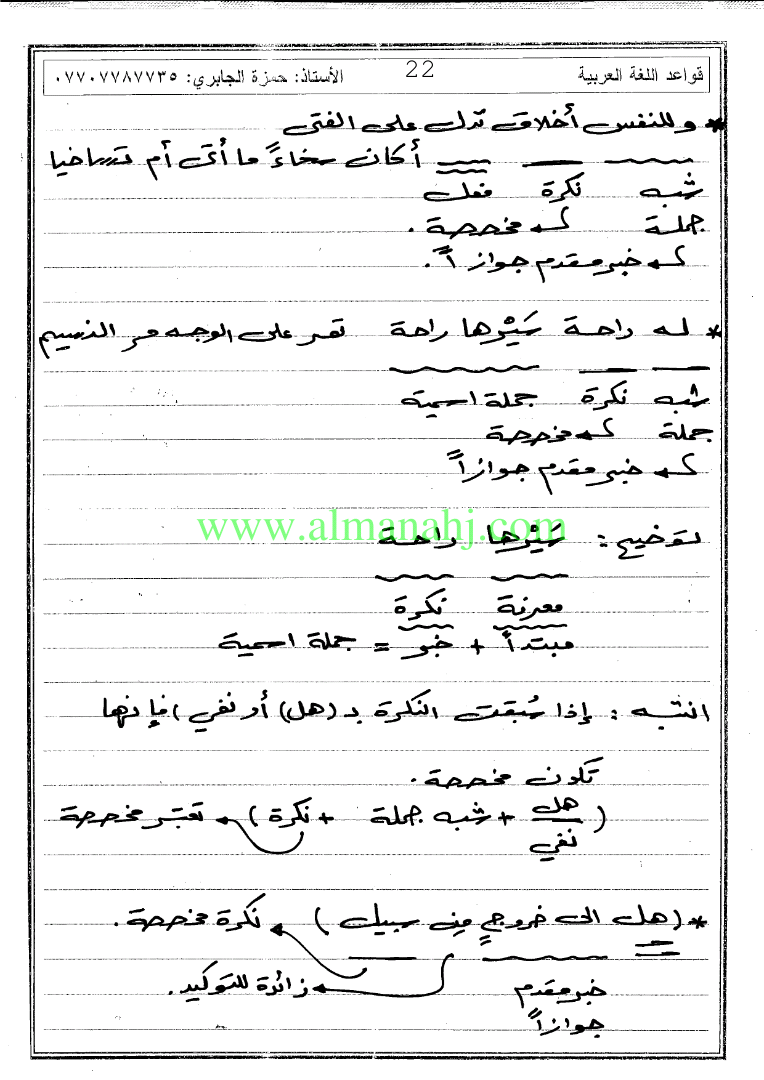 قواعد اللغة العربية 22 الأستاذ: حمزة الجابري: ٠٧٧٠٧٧٨٧٧٣٥
* وللنفس أخلاق تدل على الفتى
أكان سخاءً ما أتى أم تساخيا
شبه نكرة فعل
جملة مخصصة.
خبر مقدم جوازاً.
* له راحة سَيْرها راحة تمر على الوجه مر النسيم
شبه نكرة جملة اسمية
جملة مخصصة
خبر مقدم جوازاً
www.almanahj.com
توضيح: سَيْرها راحة
معرفة نكرة
مبتدأ + خبر = جملة اسمية
انتبه: إذا سُبقت النكرة بـ (هل) أو نفي) فإنها
تكون مخصصة.
(هل + شبه جملة + نكرة) تعتبر مخصصة
نفي
* (هل الى خروجٍ من سبيل) نكرة مخصصة.
خبر مقدم زائدة للتوكيد.
جوازاً